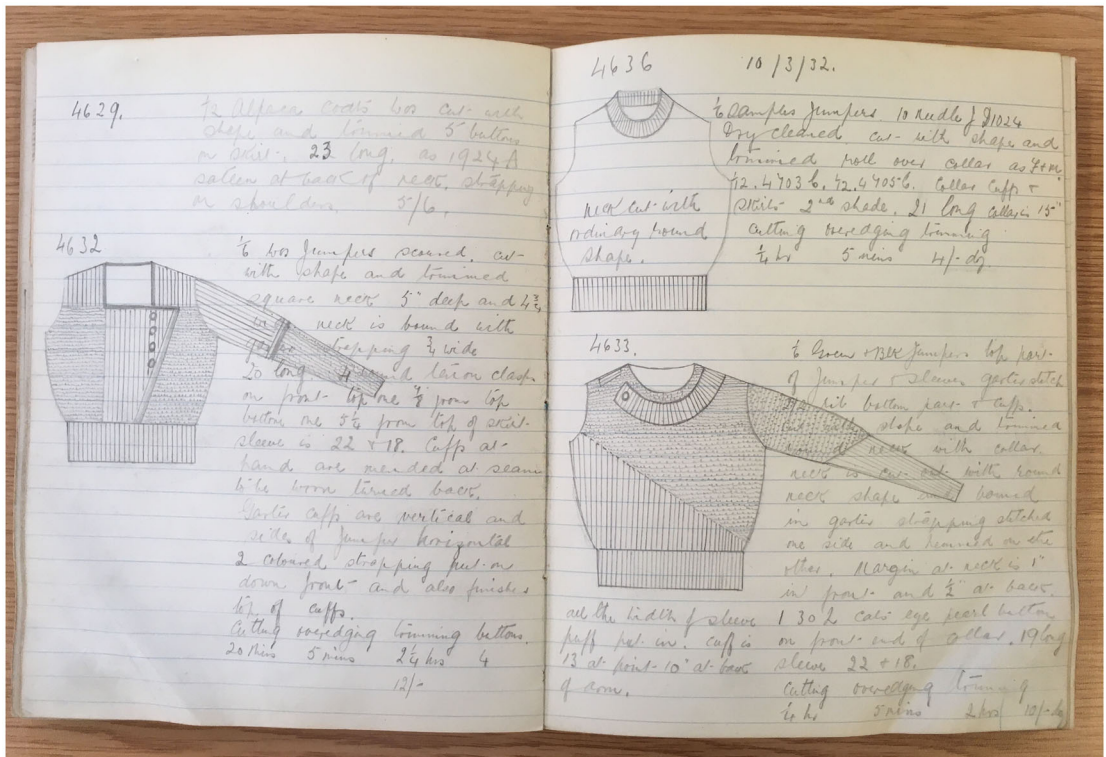 4629.
½ Alpaca coats wos cut with
shape and trimmed 5 buttons
on skirt, 23 long, as 1924A
sateen at back of neck, strapping
on shoulders 5/6.
4632
wos Jumpers scoured, cut
with shape and trimmed
square neck 5" deep and 4¾
neck is bound with
strapping ¾ wide
20 long
on front top one ½ from top
bottom one 5½ from top of skirt
sleeve is 22 & 18. Cuffs at
hand are mended at seam
to be worn turned back.
Garter cuffs are vertical and
sides of Jumper horizontal
2 coloured strapping put on
down front and also finishes
top of cuffs.
Cutting overedging trimming buttons.
20 mins 5 mins 2¼ hrs 4
12/-
4636 10/3/32.
Samples Jumpers. 10 Needle
Dry cleaned cut with shape and
trimmed roll over collar as
collar cuffs &
skirt 2nd shade. 21 long collar is 15"
cutting overedging trimming
¼ hr 5 mins 4/- dz
neck cut with
ordinary round
shape.
4633.
Green & Blk Jumpers top part
of Jumper & sleeves garter stitch
rib bottom part & cuffs.
cut with shape and trimmed
round neck with collar.
neck is cut out with round
neck shape and bound
in garter strapping stitched
one side and hemmed on the
other. Margin at neck is 1"
in front and ½" at back.
1 30 L cats eye pearl button
on front end of collar. 19 long
sleeve 22 & 18.
cutting overedging trimming
¼ hr 5 mins 2 hrs 10/- dz
all the width of sleeve
puff put in. cuff is
13 at point 10" at back
of arm.